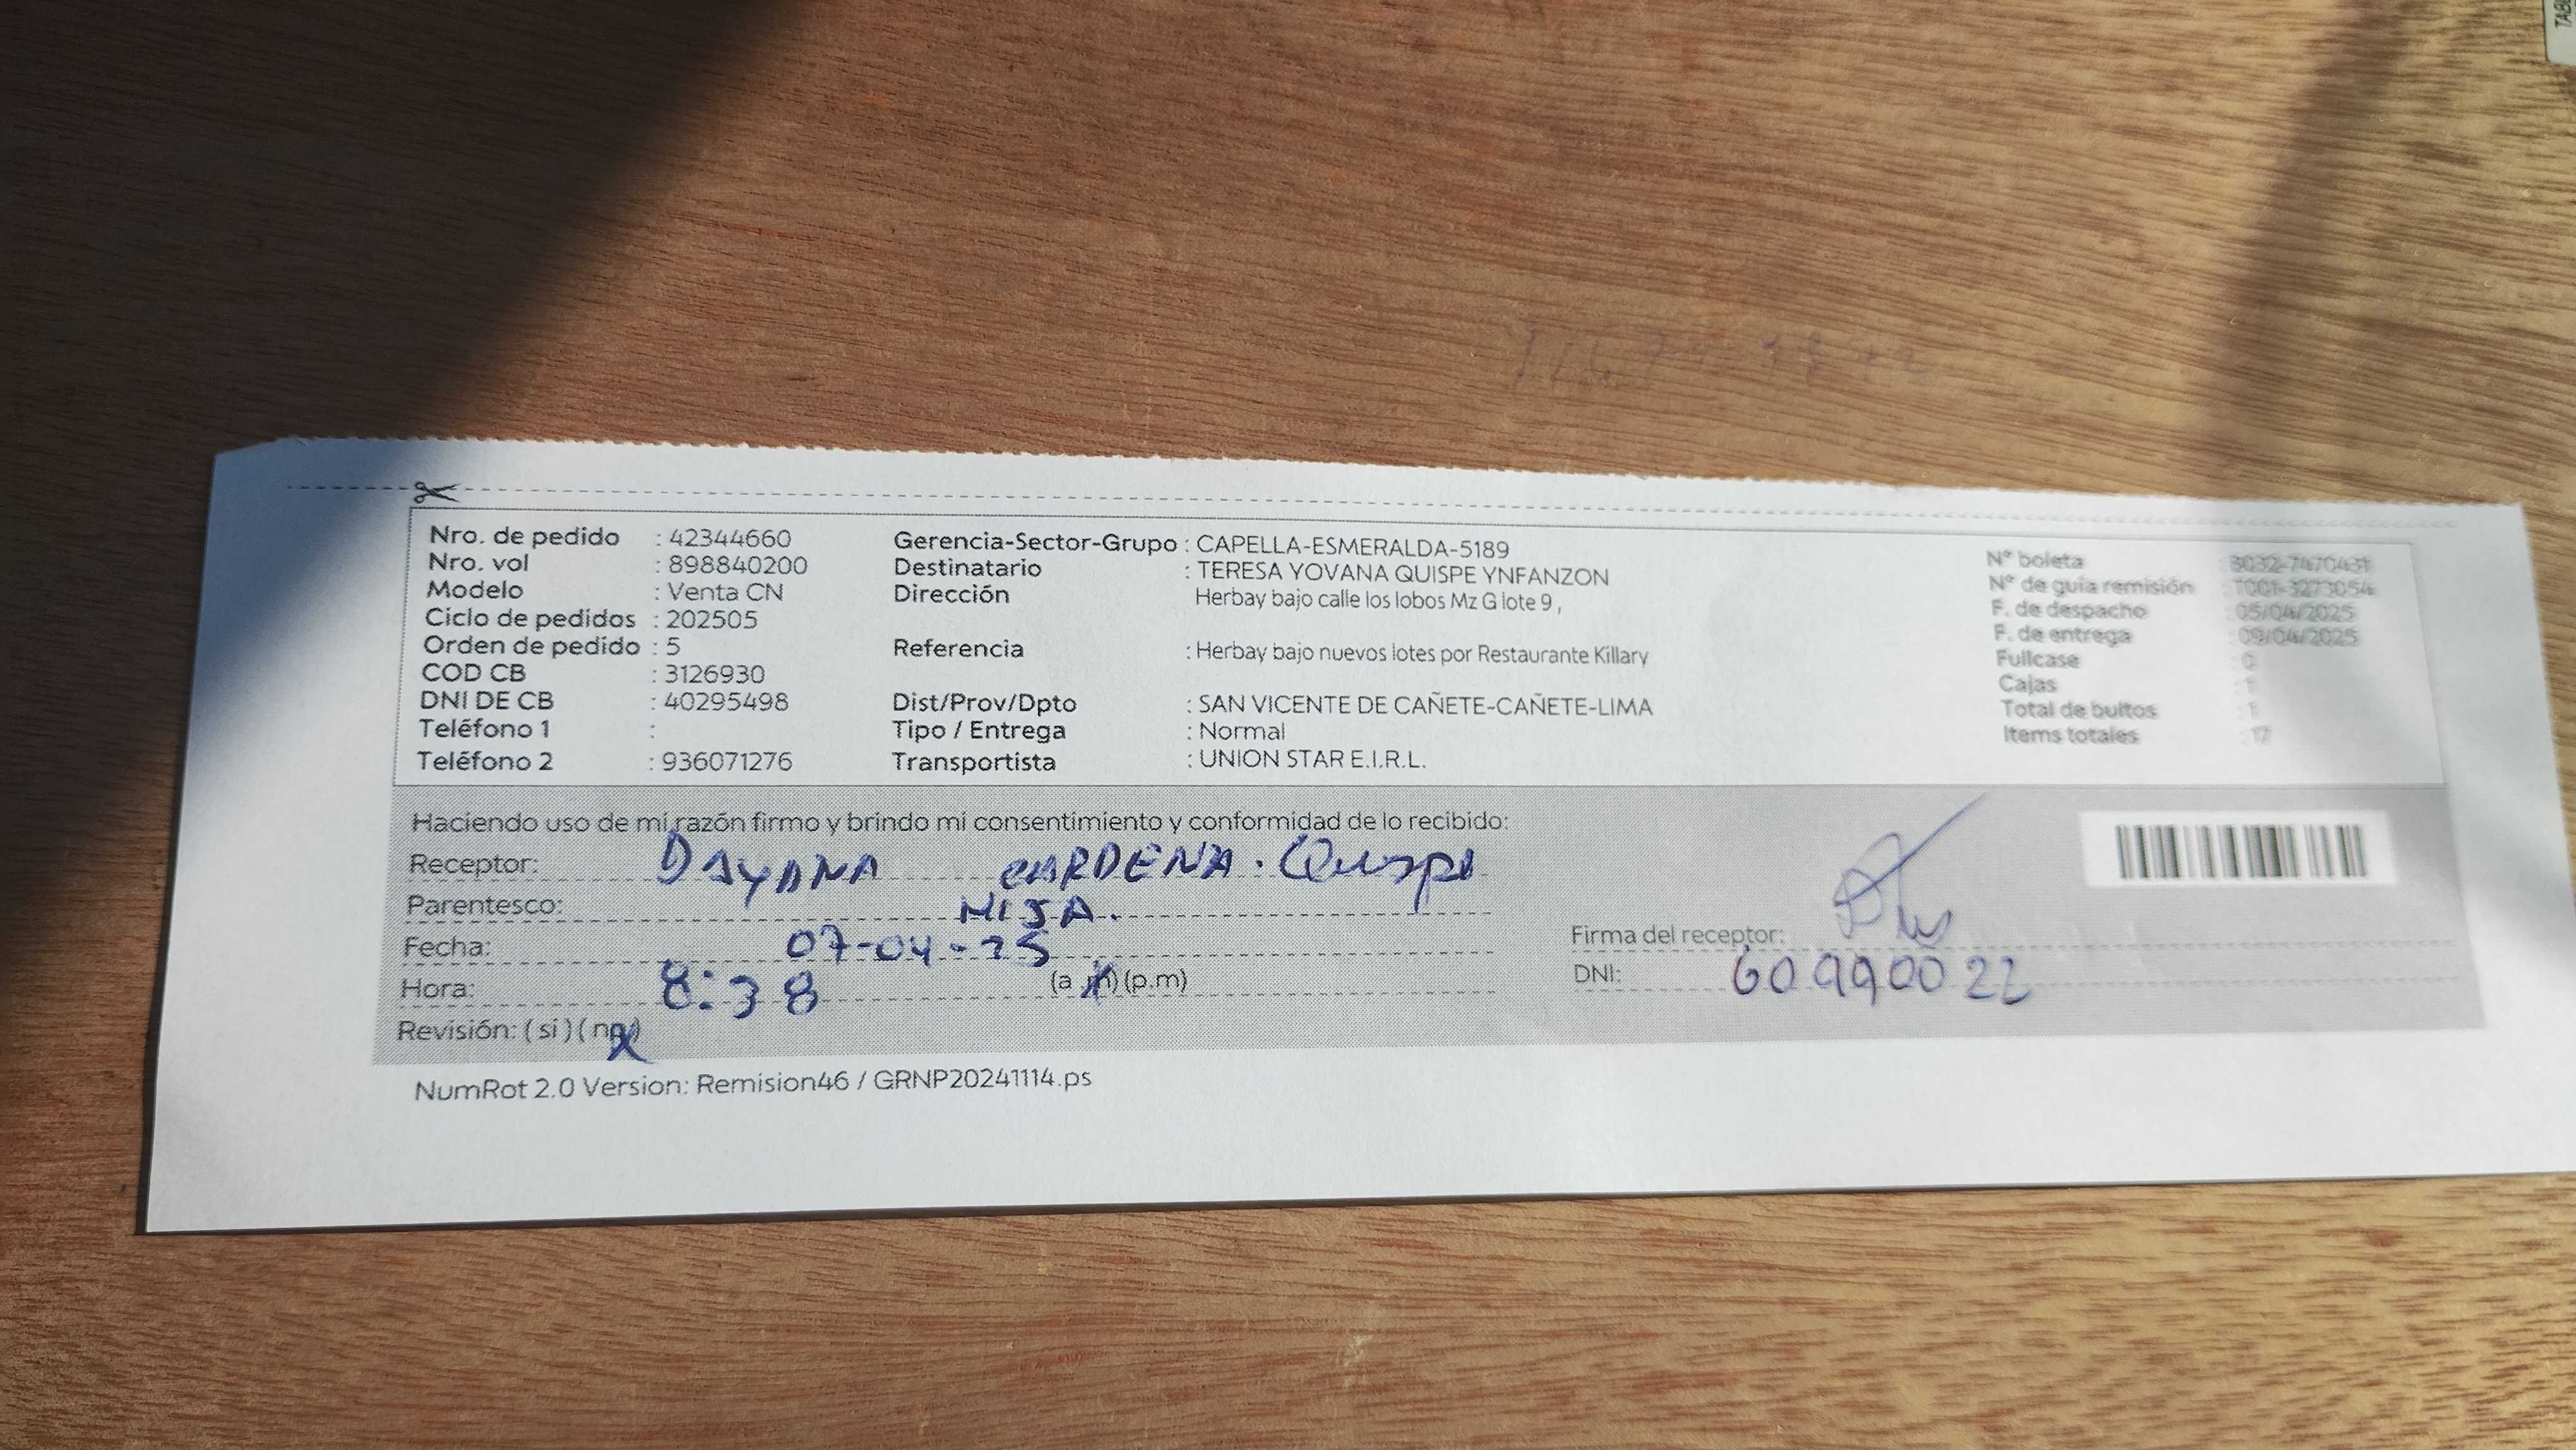 Nro. de pedido : 42344660
Nro. vol : 898840200
Modelo : Venta CN
Ciclo de pedidos : 202505
Orden de pedido : 5
COD CB : 3126930
DNI DE CB : 40295498
Teléfono 1 :
Teléfono 2 : 936071276
Gerencia-Sector-Grupo : CAPELLA-ESMERALDA-5189
Destinatario : TERESA YOVANA QUISPE YNFANZON
Dirección Herbay bajo calle los lobos Mz G lote 9 ,
Referencia : Herbay bajo nuevos lotes por Restaurante Killary
Dist/Prov/Dpto : SAN VICENTE DE CAÑETE-CAÑETE-LIMA
Tipo / Entrega : Normal
Transportista : UNION STAR E.I.R.L.
N° boleta
N° de guia remisión : T001-3273054
F. de despacho : 05/04/2025
F. de entrega : 09/04/2025
Fullcase : 0
Cajas : 1
Total de bultos : 1
Items totales : 17
Haciendo uso de mi razón firmo y brindo mi consentimiento y conformidad de lo recibido:
Receptor: DAYANA CARDENA. Quispe
Parentesco: HIJA.
Fecha: 07-04-25
Hora: 8:38 (a.m) (p.m)
Revisión: ( si ) ( no )
Firma del receptor:
DNI: 60990022
NumRot 2.0 Version: Remision46 / GRNP20241114.ps